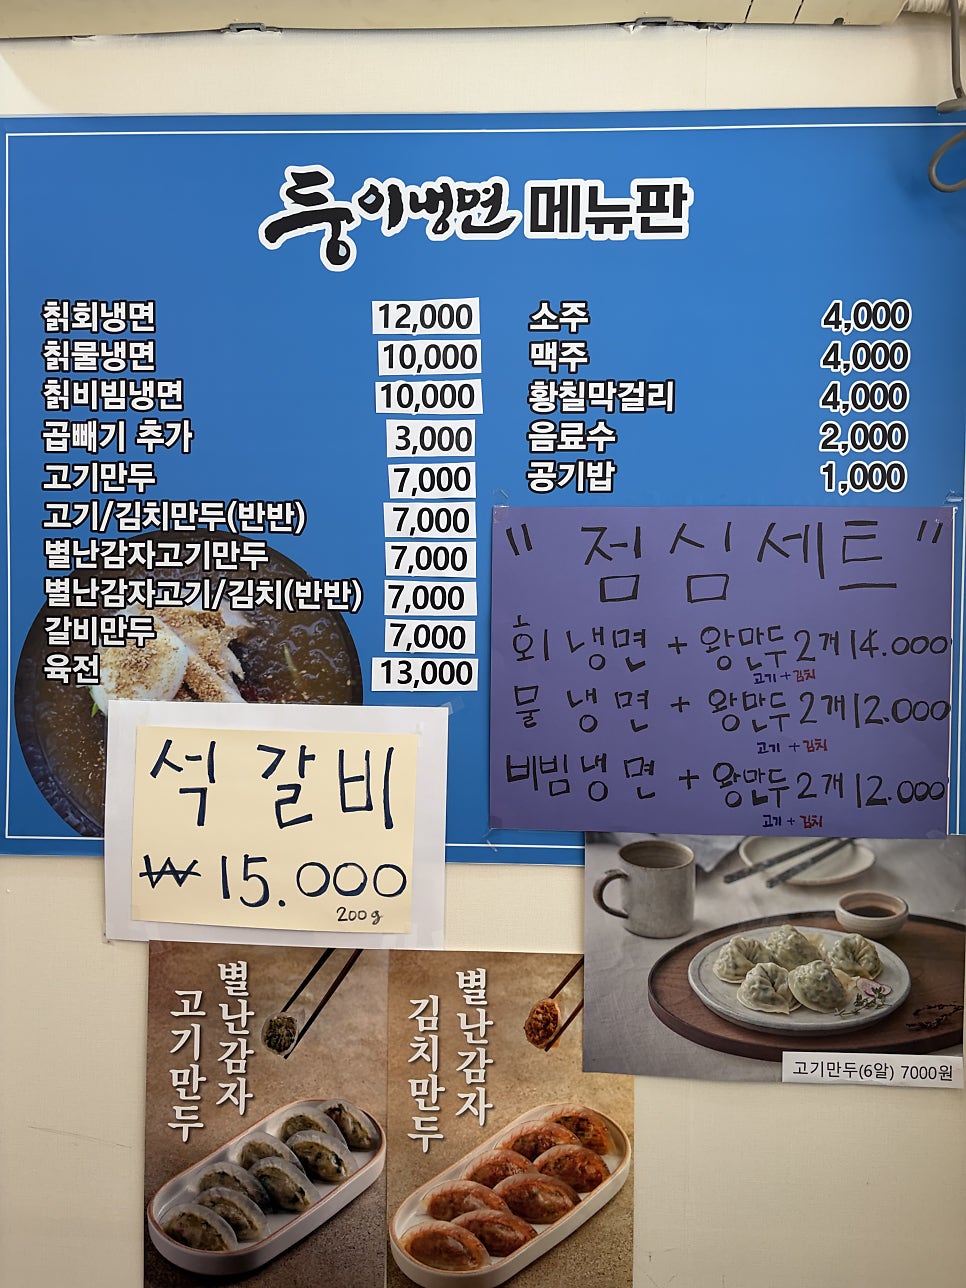 둥이냉면 메뉴판
칡회냉면 12,000
칡물냉면 10,000
칡비빔냉면 10,000
곱빼기 추가 3,000
고기만두 7,000
고기/김치만두(반반) 7,000
별난감자고기만두 7,000
별난감자고기/김치(반반) 7,000
갈비만두 7,000
육전 13,000
소주 4,000
맥주 4,000
황칠막걸리 4,000
음료수 2,000
공기밥 1,000
" 점심세트 "
회냉면 + 왕만두2개 14.000
고기 + 김치
물냉면 + 왕만두2개 12.000
고기 + 김치
비빔냉면 + 왕만두2개 12.000
고기 + 김치
석갈비
₩15.000
200g
별난감자
고기만두
별난감자
김치만두
고기만두(6알) 7000원